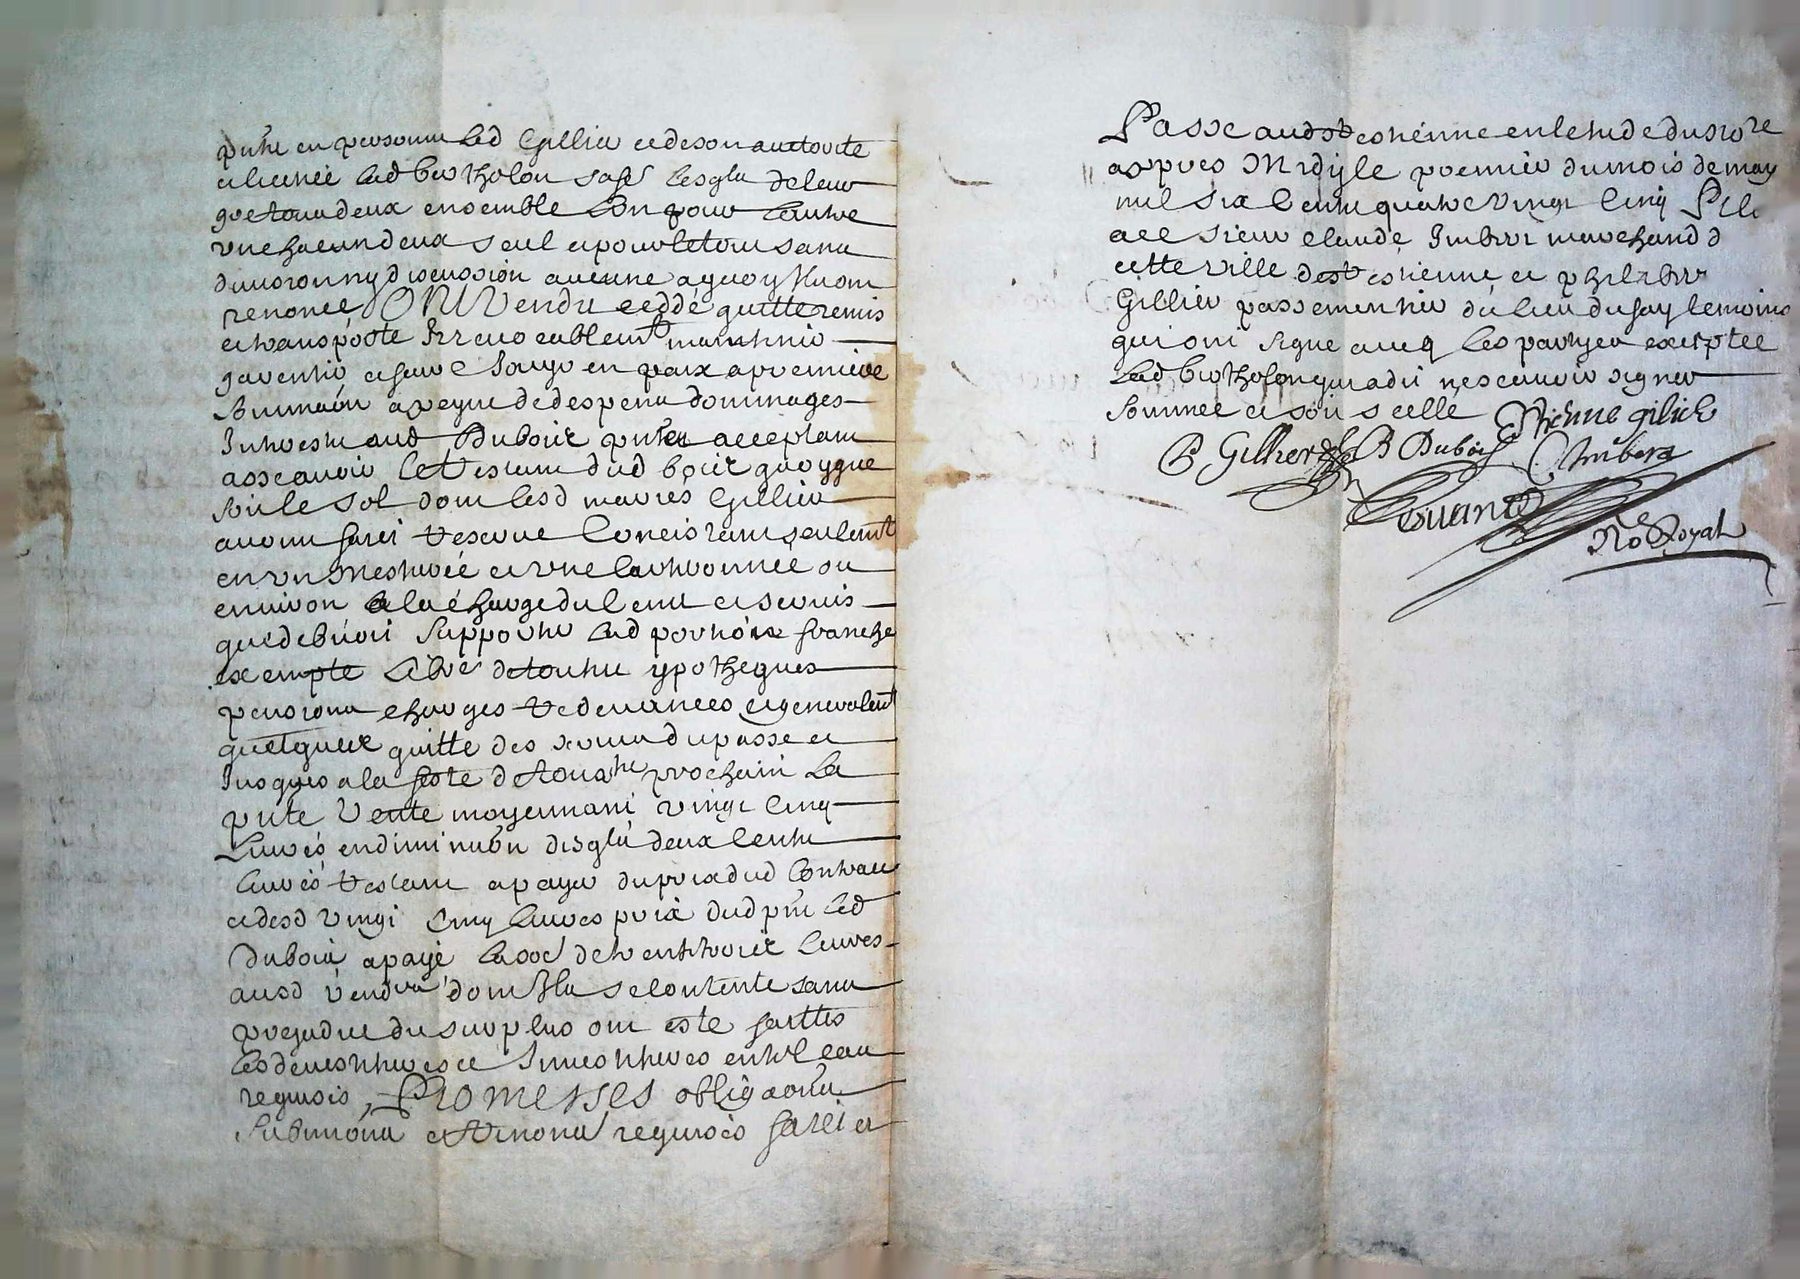 pnte en personne led Gillier et de son auctorite
et licence lad Bertholon sa fe lesqls de leur
gre tous deux ensemble l'un pour l'autre
un chacun deux seul et pour le tout sans
division ny discussion aucune a quoy ils ont
renoncé ONT Vendu ceddé quitté remis
et transporte Irrevocablemt maintenir
garentir et faire Jouyr en paix a premiere
sommaon a peyne de despens dommages
Interestz aud Duboiz pnt et acceptant
assçavoir le restant dud boiz quoyque
soit le sol dont lesd mariés Gillier
avoint faict reserve concistant seulemt
en un mesterée et une cartonnée ou
environ a la charge du cent et servis
que debvoit supporter lad portion franche
exempte libre de toutte ypotheques
pensions charges redevances et generalemt
quelquex quitte des servis du passe et
Jusques a la feste de Tousts prochain la
pnte Vente moyennant vingt cinq
Livres en diminuon desqls deux cents
livres restant a payer du prix dud Contract
et desd vingt cinq livres prix dud pnt led
Duboiz a payé la soe de trente trois livres
ausd vendrs dont Ilz se contente sans
prejudice du surplus ont este faittes
les devestitures et Investitures en tel cas
requises, Promesses obligaons
submions et renons requises faict et
Passe aud St estienne en lestude du no re
appres Midy le premier du mois de may
mil six cents quatre vingt cinq Pnts
a ce sieur claude Imbert marchand d
cette ville de st estienne et philibert
Gillier passementier du lieu du fay temoins
qui ont signe avecq les partyes exceptee
lad Bertholon qui a dit ne scavoir signer
sommee et soit scellé Estienne gilier
P Gillier B Duboiz C Imbert
No Royal